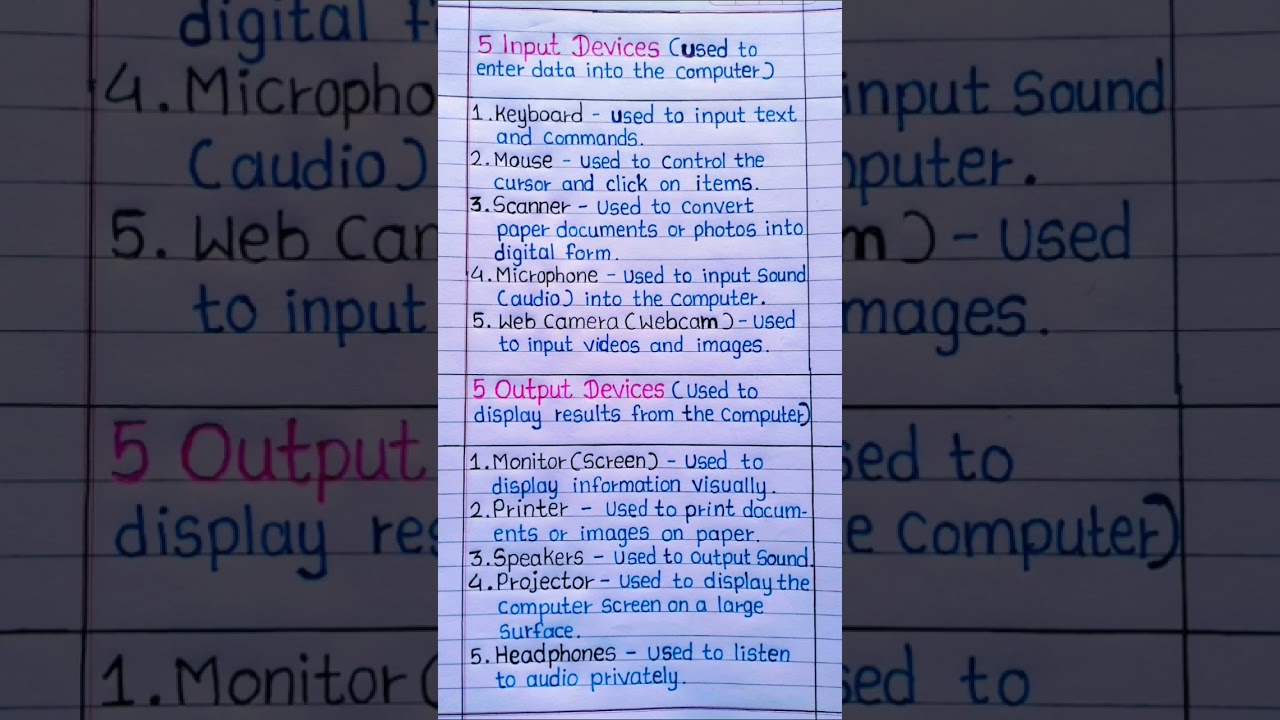 5 Input Devices (used to
enter data into the computer)
1. Keyboard - used to input text
and commands.
2. Mouse - used to control the
cursor and click on items.
3. Scanner - used to convert
paper documents or photos into
digital form.
4. Microphone - used to input sound
(audio) into the computer.
5. Web Camera (Webcam) - used
to input videos and images.
5 Output Devices (used to
display results from the computer)
1. Monitor (Screen) - used to
display information visually.
2. Printer - used to print docum-
ents or images on paper.
3. Speakers - used to output sound.
4. Projector - used to display the
computer screen on a large
surface.
5. Headphones - used to listen
to audio privately.